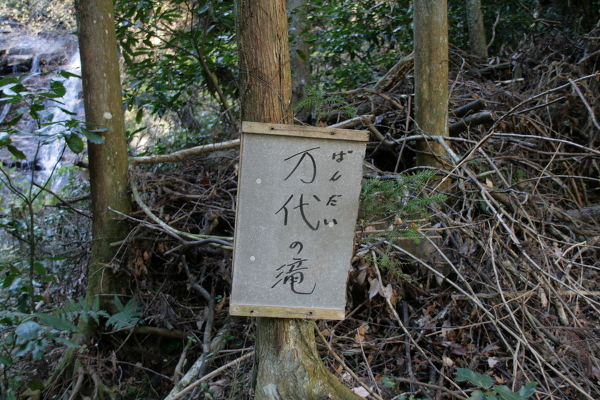 万代の滝
ばんだい